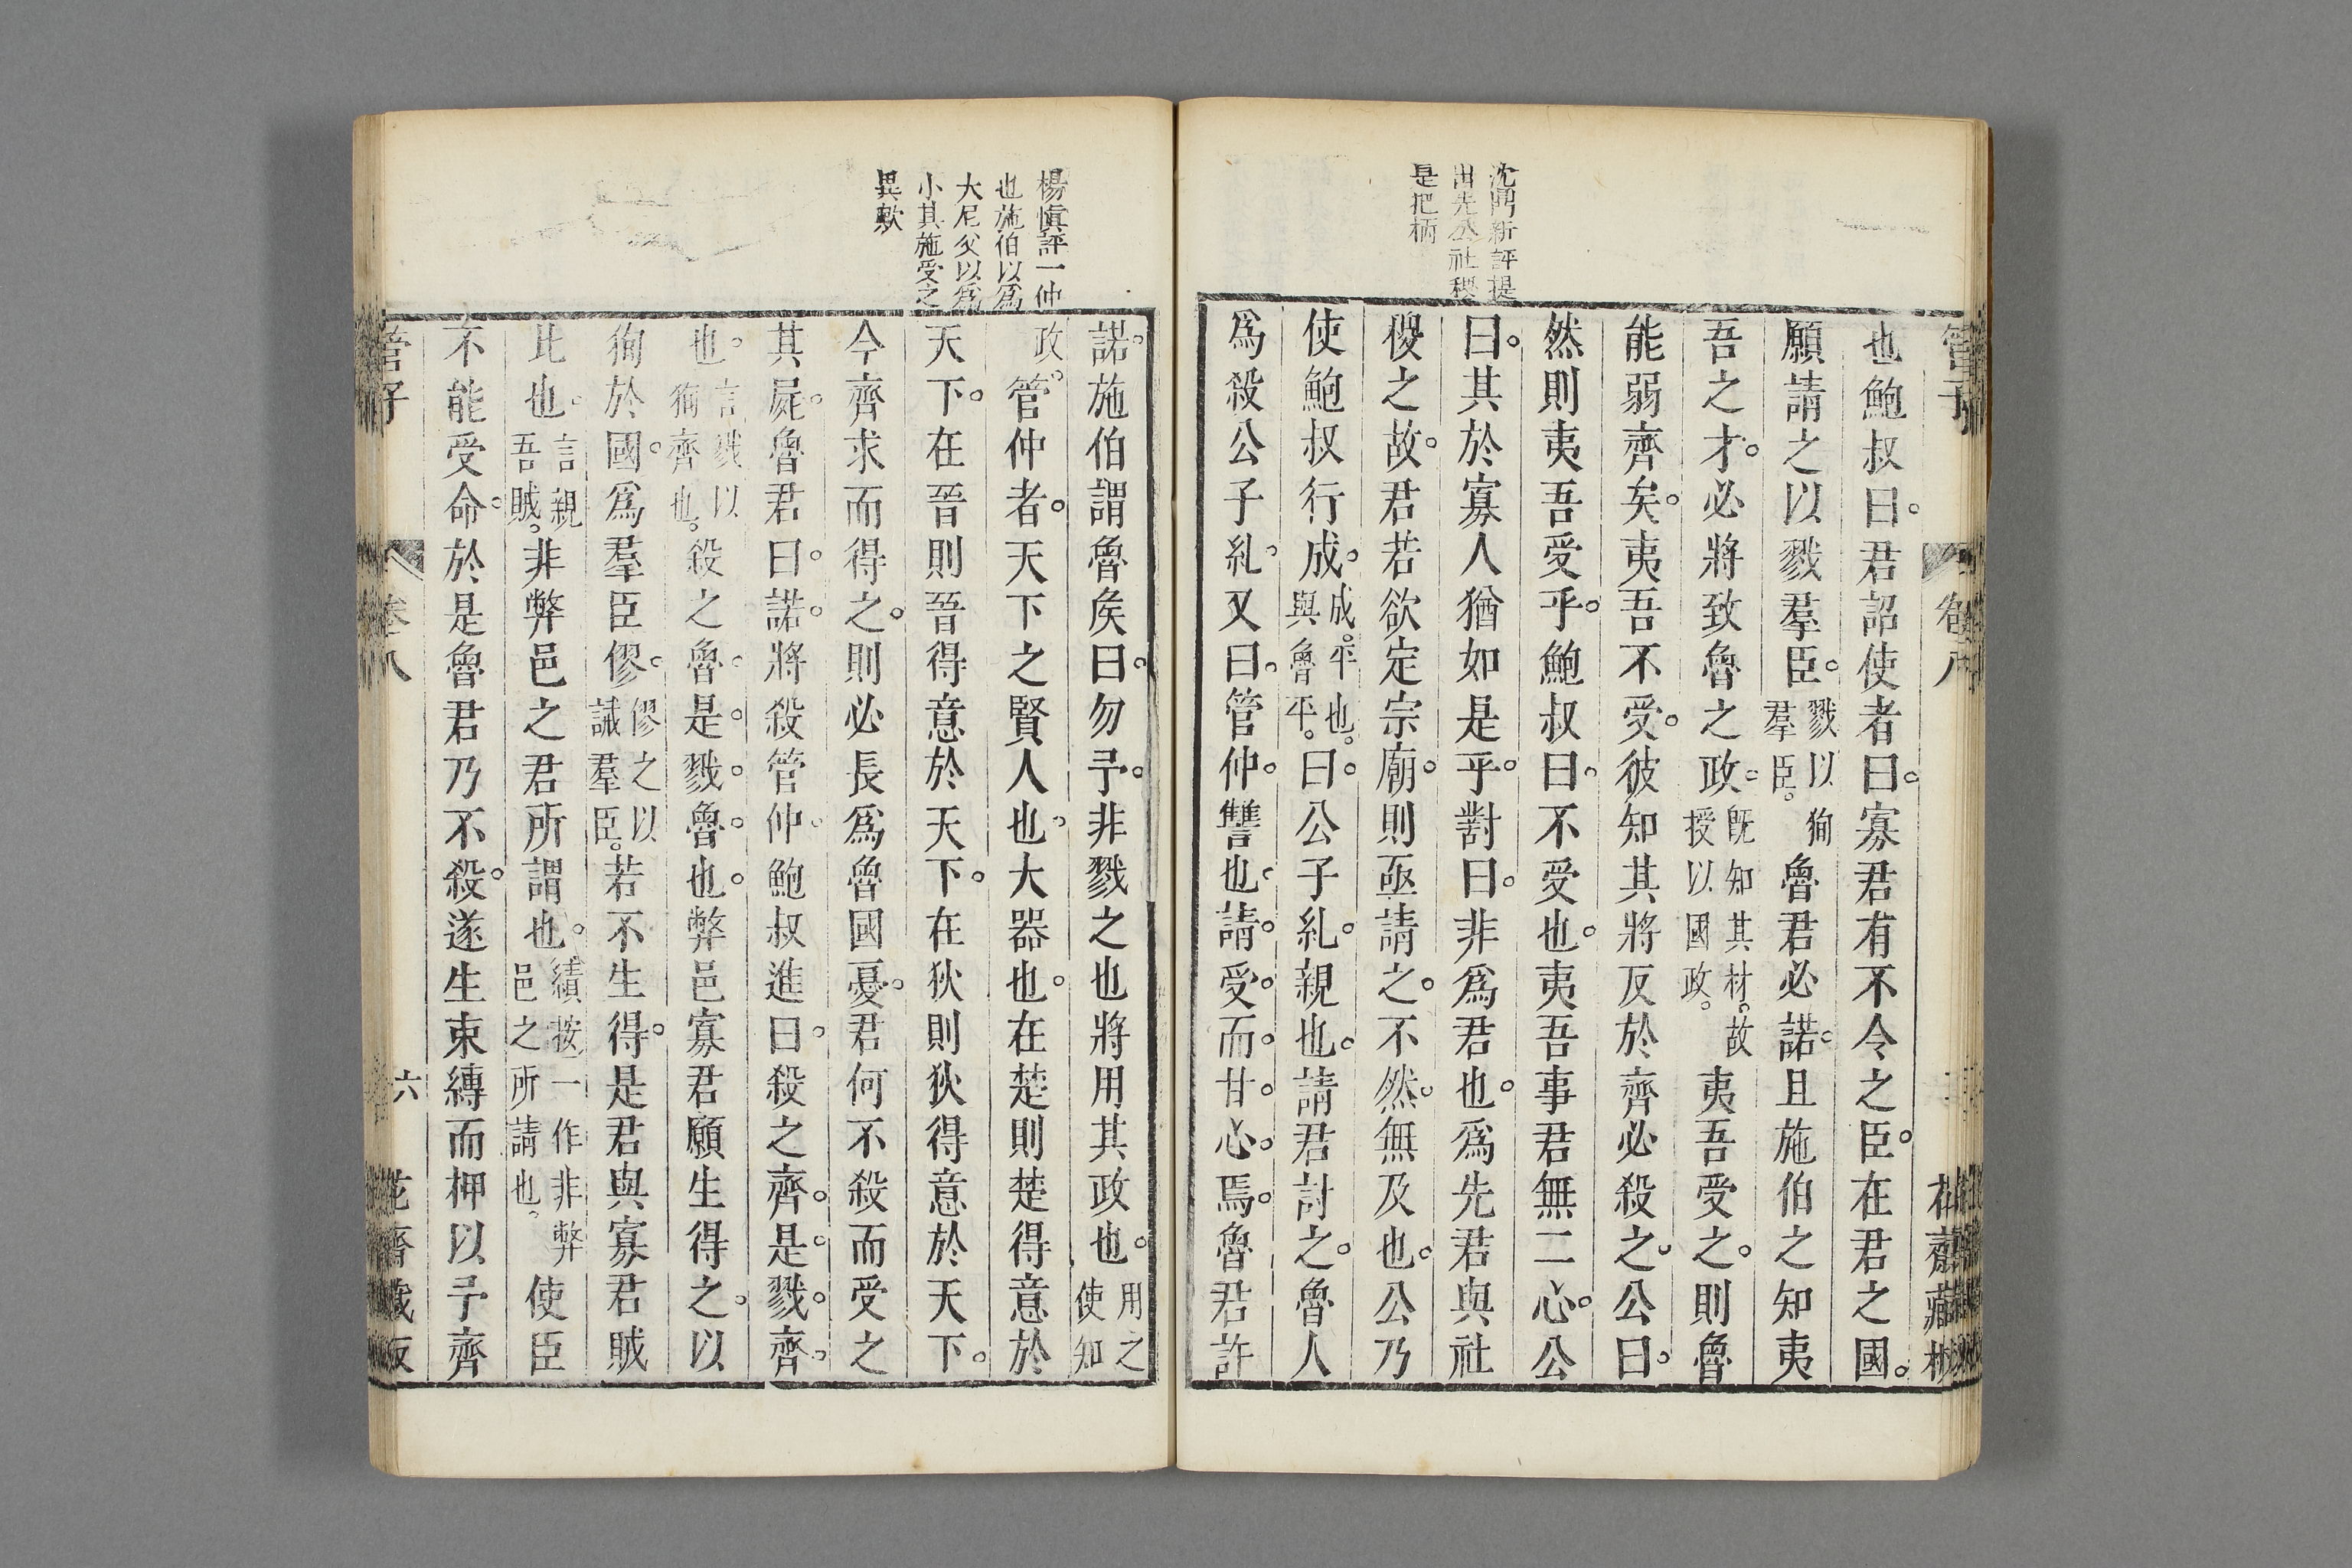 沈鼎新評提
出先丞社稷
是把柄
管子
卷八
花齋藏板
也鮑叔曰。君詔使者曰。寡君有不令之臣。在君之國。
願請之以戮羣臣。戮以狥羣臣。魯君必諾。且施伯之知夷
吾之才。必將致魯之政。旣知其材。故授以國政。夷吾受之。則魯
能弱齊矣。夷吾不受。彼知其將反於齊必殺之。公曰。
然則夷吾受乎。鮑叔曰。不受也。夷吾事君無二心。公
曰。其於寡人猶如是乎。對曰。非爲君也。爲先君與社
稷之故。君若欲定宗廟。則亟請之。不然。無及也。公乃
使鮑叔行成。成。平也。與魯平。曰。公子糺。親也。請君討之。魯人
爲殺公子糺。又曰。管仲。讐也。請。受。而。甘。心。焉。魯君許
楊愼評一仲
也施伯以爲
大尼父以爲
小其施受之
異歟
諾。施伯謂魯矦曰。勿予。非戮之也將用其政也。用之使知
政。管仲者。天下之賢人也。大器也。在楚則楚得意於
天下。在晉則晉得意於天下。在狄則狄得意於天下。
今齊求而得之。則必長爲魯國憂。君何不殺而受之
其屍。魯君曰。諾。將殺管仲。鮑叔進曰。殺之齊。是。戮。齊。
也。言戮以狥齊也。殺之魯。是。戮。魯。也。弊邑寡君願生得之。以
狥於國。爲羣臣僇。僇之以誡羣臣。若不生得。是君與寡君賊
比也。言親吾賊。非弊邑之君所謂也。績按一作非弊邑之所請也。使臣
不能受命。於是魯君乃不殺。遂生束縛而柙以予齊
管子
卷八
六
花齋藏板